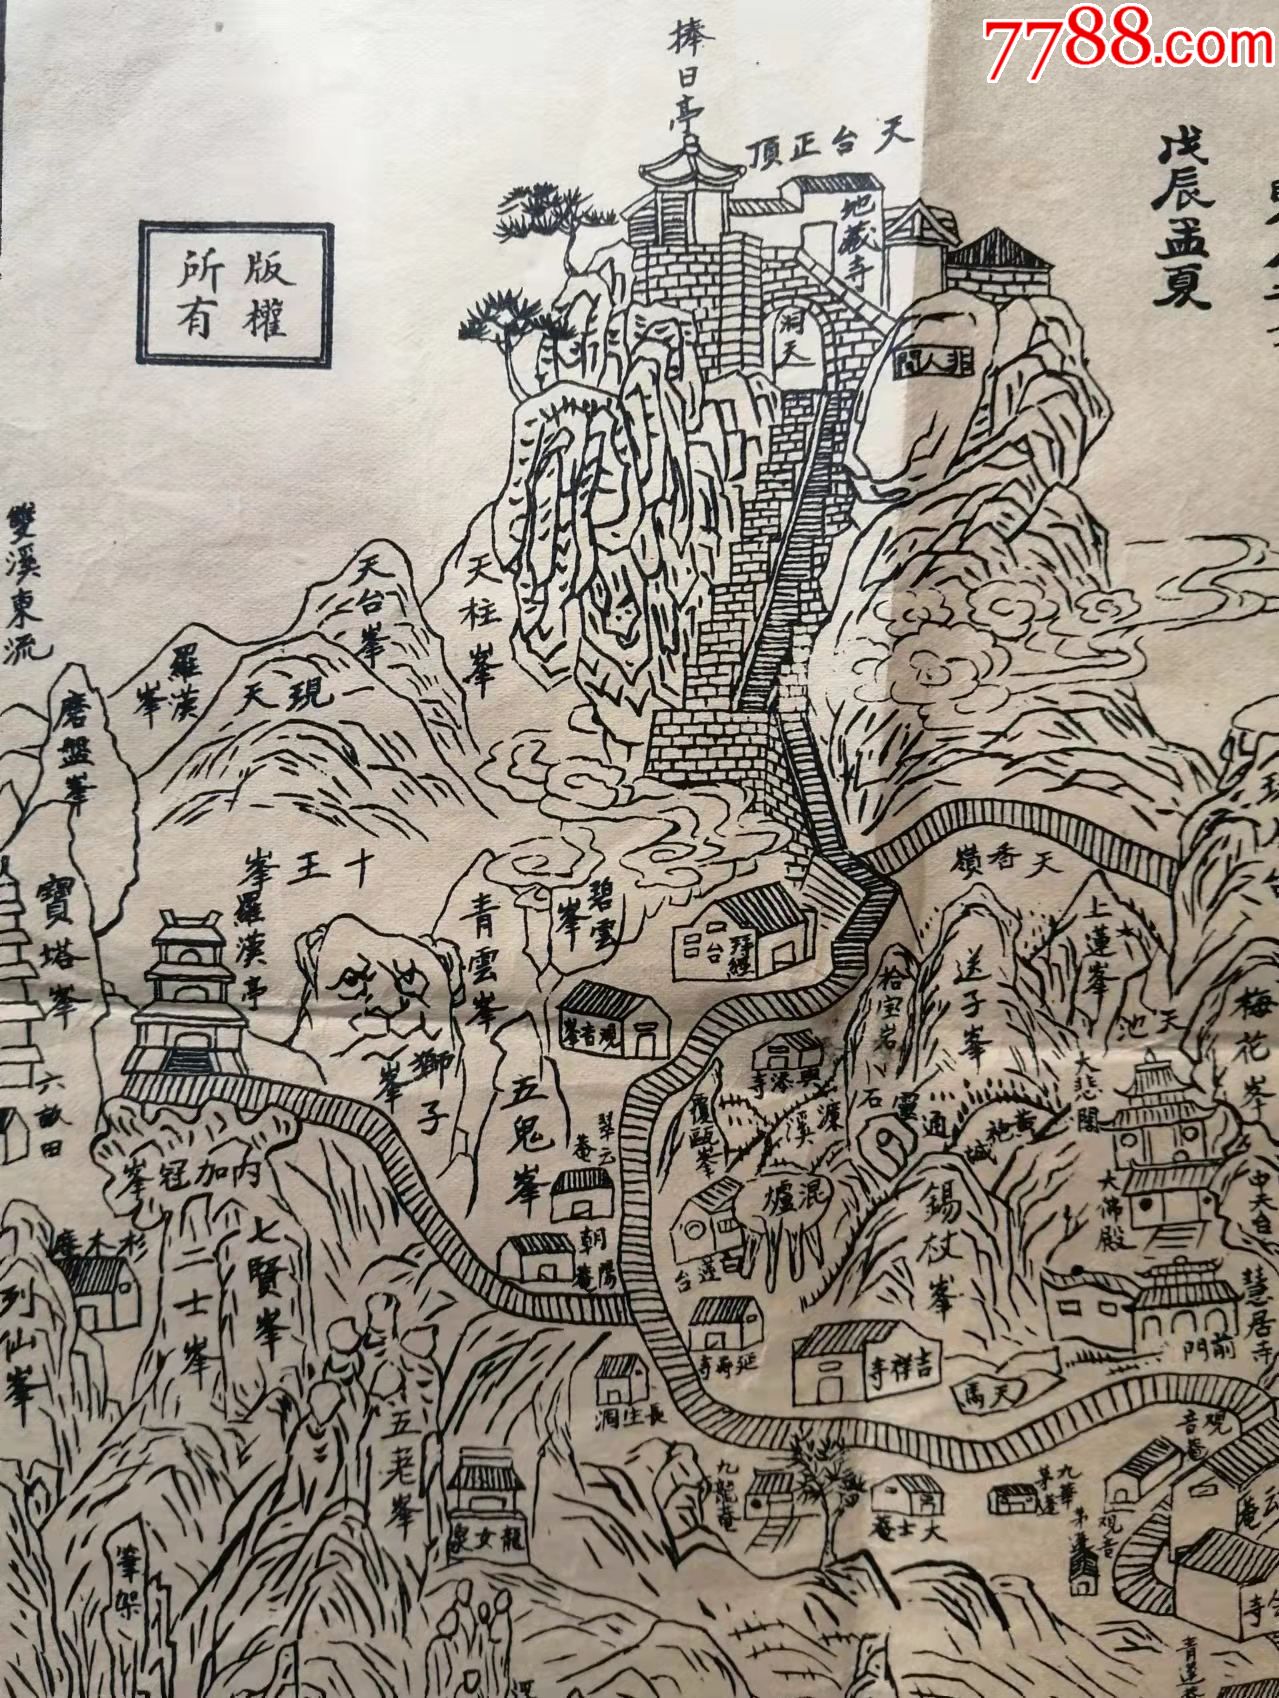 7788.com
捧日亭
天台正頂
地藏寺
戊辰孟夏
版權
所有
洞天
非人間
雙溪東流
天台峯
天柱峯
羅漢峯
一現天
磨盤峯
十王峯
羅漢亭
寶塔峯
六畝田
青雲峯
碧雲峯
拜經台
天香嶺
上蓮峯
送子峯
拾宝岩
天池
梅花峯
獅子峯
五鬼峯
观音峯
翠云菴
朝陽菴
覆甌峯
濂溪
通靈石
黄袍城
大悲閣
大佛殿
慧居寺
前門
混爐
錫杖峯
白蓮台
内加冠峯
七賢峯
二士峯
列仙峯
延壽寺
吉祥寺
天馬
長生洞
五老峯
龍女泉
九龍菴
大士菴
九華茅蓬
观音菴
观音茅蓬
筆架